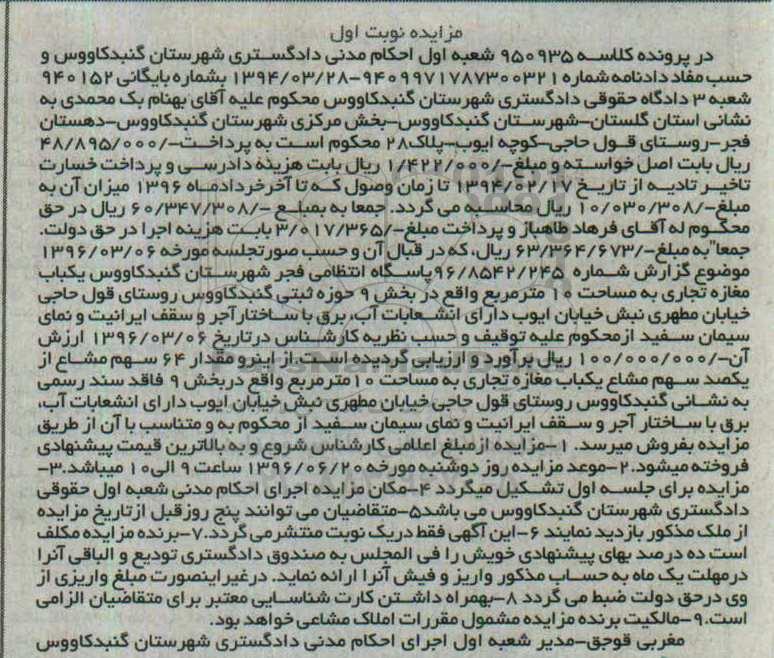 مزایده نوبت اول
در پرونده کلاسه ۹۵۰۹۳۵ شعبه اول احکام مدنی دادگستری شهرستان گنبدکاووس و
حسب مفاد دادنامه شماره ۹۴۰۹۹۷۱۷۸۷۳۰۰۳۲۱-۱۳۹۴/۰۳/۲۸ بشماره بایگانی ۹۴۰۱۵۲
شعبه ۳ دادگاه حقوقی دادگستری شهرستان گنبدکاووس محکوم علیه آقای بهنام بک محمدی به
نشانی استان گلستان-شهرستان گنبدکاووس-بخش مرکزی شهرستان گنبدکاووس-دهستان
فجر-روستای قول حاجی-کوچه ایوب-پلاک۲۸ محکوم است به پرداخت-/۴۸/۸۹۵/۰۰۰
ریال بابت اصل خواسته و مبلغ-/۱/۴۲۲/۰۰۰ ریال بابت هزینه دادرسی و پرداخت خسارت
تاخیر تادیه از تاریخ ۱۳۹۴/۰۲/۱۷ تا زمان وصول که تا آخرخردادماه ۱۳۹۶ میزان آن به
مبلغ-/۱۰/۰۳۰/۳۰۸ ریال محاسبه می گردد. جمعا به بمبلغ -/۶۰/۳۴۷/۳۰۸ ریال در حق
محکوم له آقای فرهاد طاهباز و پرداخت مبلغ-/۳/۰۱۷/۳۶۵ بابت هزینه اجرا در حق دولت.
جمعا"به مبلغ-/۶۳/۳۶۴/۶۷۳ ریال، که در قبال آن و حسب صورتجلسه مورخه ۱۳۹۶/۰۳/۰۶
موضوع گزارش شماره ۹۶/۸۵۴۲/۲۴۵پاسگاه انتظامی فجر شهرستان گنبدکاووس یکباب
مغازه تجاری به مساحت ۱۰ مترمربع واقع در بخش ۹ حوزه ثبتی گنبدکاووس روستای قول حاجی
خیابان مطهری نبش خیابان ایوب دارای انشعابات آب، برق با ساختار آجر و سقف ایرانیت و نمای
سیمان سفید ازمحکوم علیه توقیف و حسب نظریه کارشناس درتاریخ ۱۳۹۶/۰۳/۰۶ ارزش
آن-/۱۰۰/۰۰۰/۰۰۰ ریال برآورد و ارزیابی گردیده است. از اینرو مقدار ۶۴ سهم مشاع از
یکصد سهم مشاع یکباب مغازه تجاری به مساحت ۱۰مترمربع واقع دربخش ۹ فاقد سند رسمی
به نشانی گنبدکاووس روستای قول حاجی خیابان مطهری نبش خیابان ایوب دارای انشعابات آب،
برق با ساختار آجر و سقف ایرانیت و نمای سیمان سفید از محکوم به و متناسب با آن از طریق
مزایده بفروش میرسد. ۱-مزایده ازمبلغ اعلامی کارشناس شروع و به بالاترین قیمت پیشنهادی
فروخته میشود.۲-موعد مزایده روز دوشنبه مورخه ۱۳۹۶/۰۶/۲۰ ساعت ۹ الی۱۰ میباشد.۳-
مزایده برای جلسه اول تشکیل میگردد ۴-مکان مزایده اجرای احکام مدنی شعبه اول حقوقی
دادگستری شهرستان گنبدکاووس می باشد۵-متقاضیان می توانند پنج روزقبل ازتاریخ مزایده
از ملک مذکور بازدید نمایند ۶-این آگهی فقط دریک نوبت منتشرمی گردد.۷-برنده مزایده مکلف
است ده درصد بهای پیشنهادی خویش را فی المجلس به صندوق دادگستری تودیع و الباقی آنرا
درمهلت یک ماه به حساب مذکور واریز و فیش آنرا ارائه نماید. درغیراینصورت مبلغ واریزی از
وی درحق دولت ضبط می گردد ۸-بهمراه داشتن کارت شناسایی معتبر برای متقاضیان الزامی
است.۹-مالکیت برنده مزایده مشمول مقررات املاک مشاعی خواهد بود.
مغربی قوجق-مدیر شعبه اول اجرای احکام مدنی دادگستری شهرستان گنبدکاووس